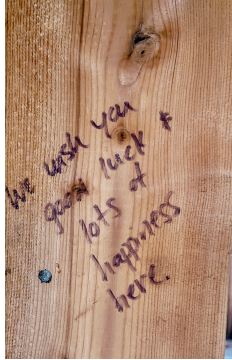 We wish you
good luck +
lots of
happiness
here.